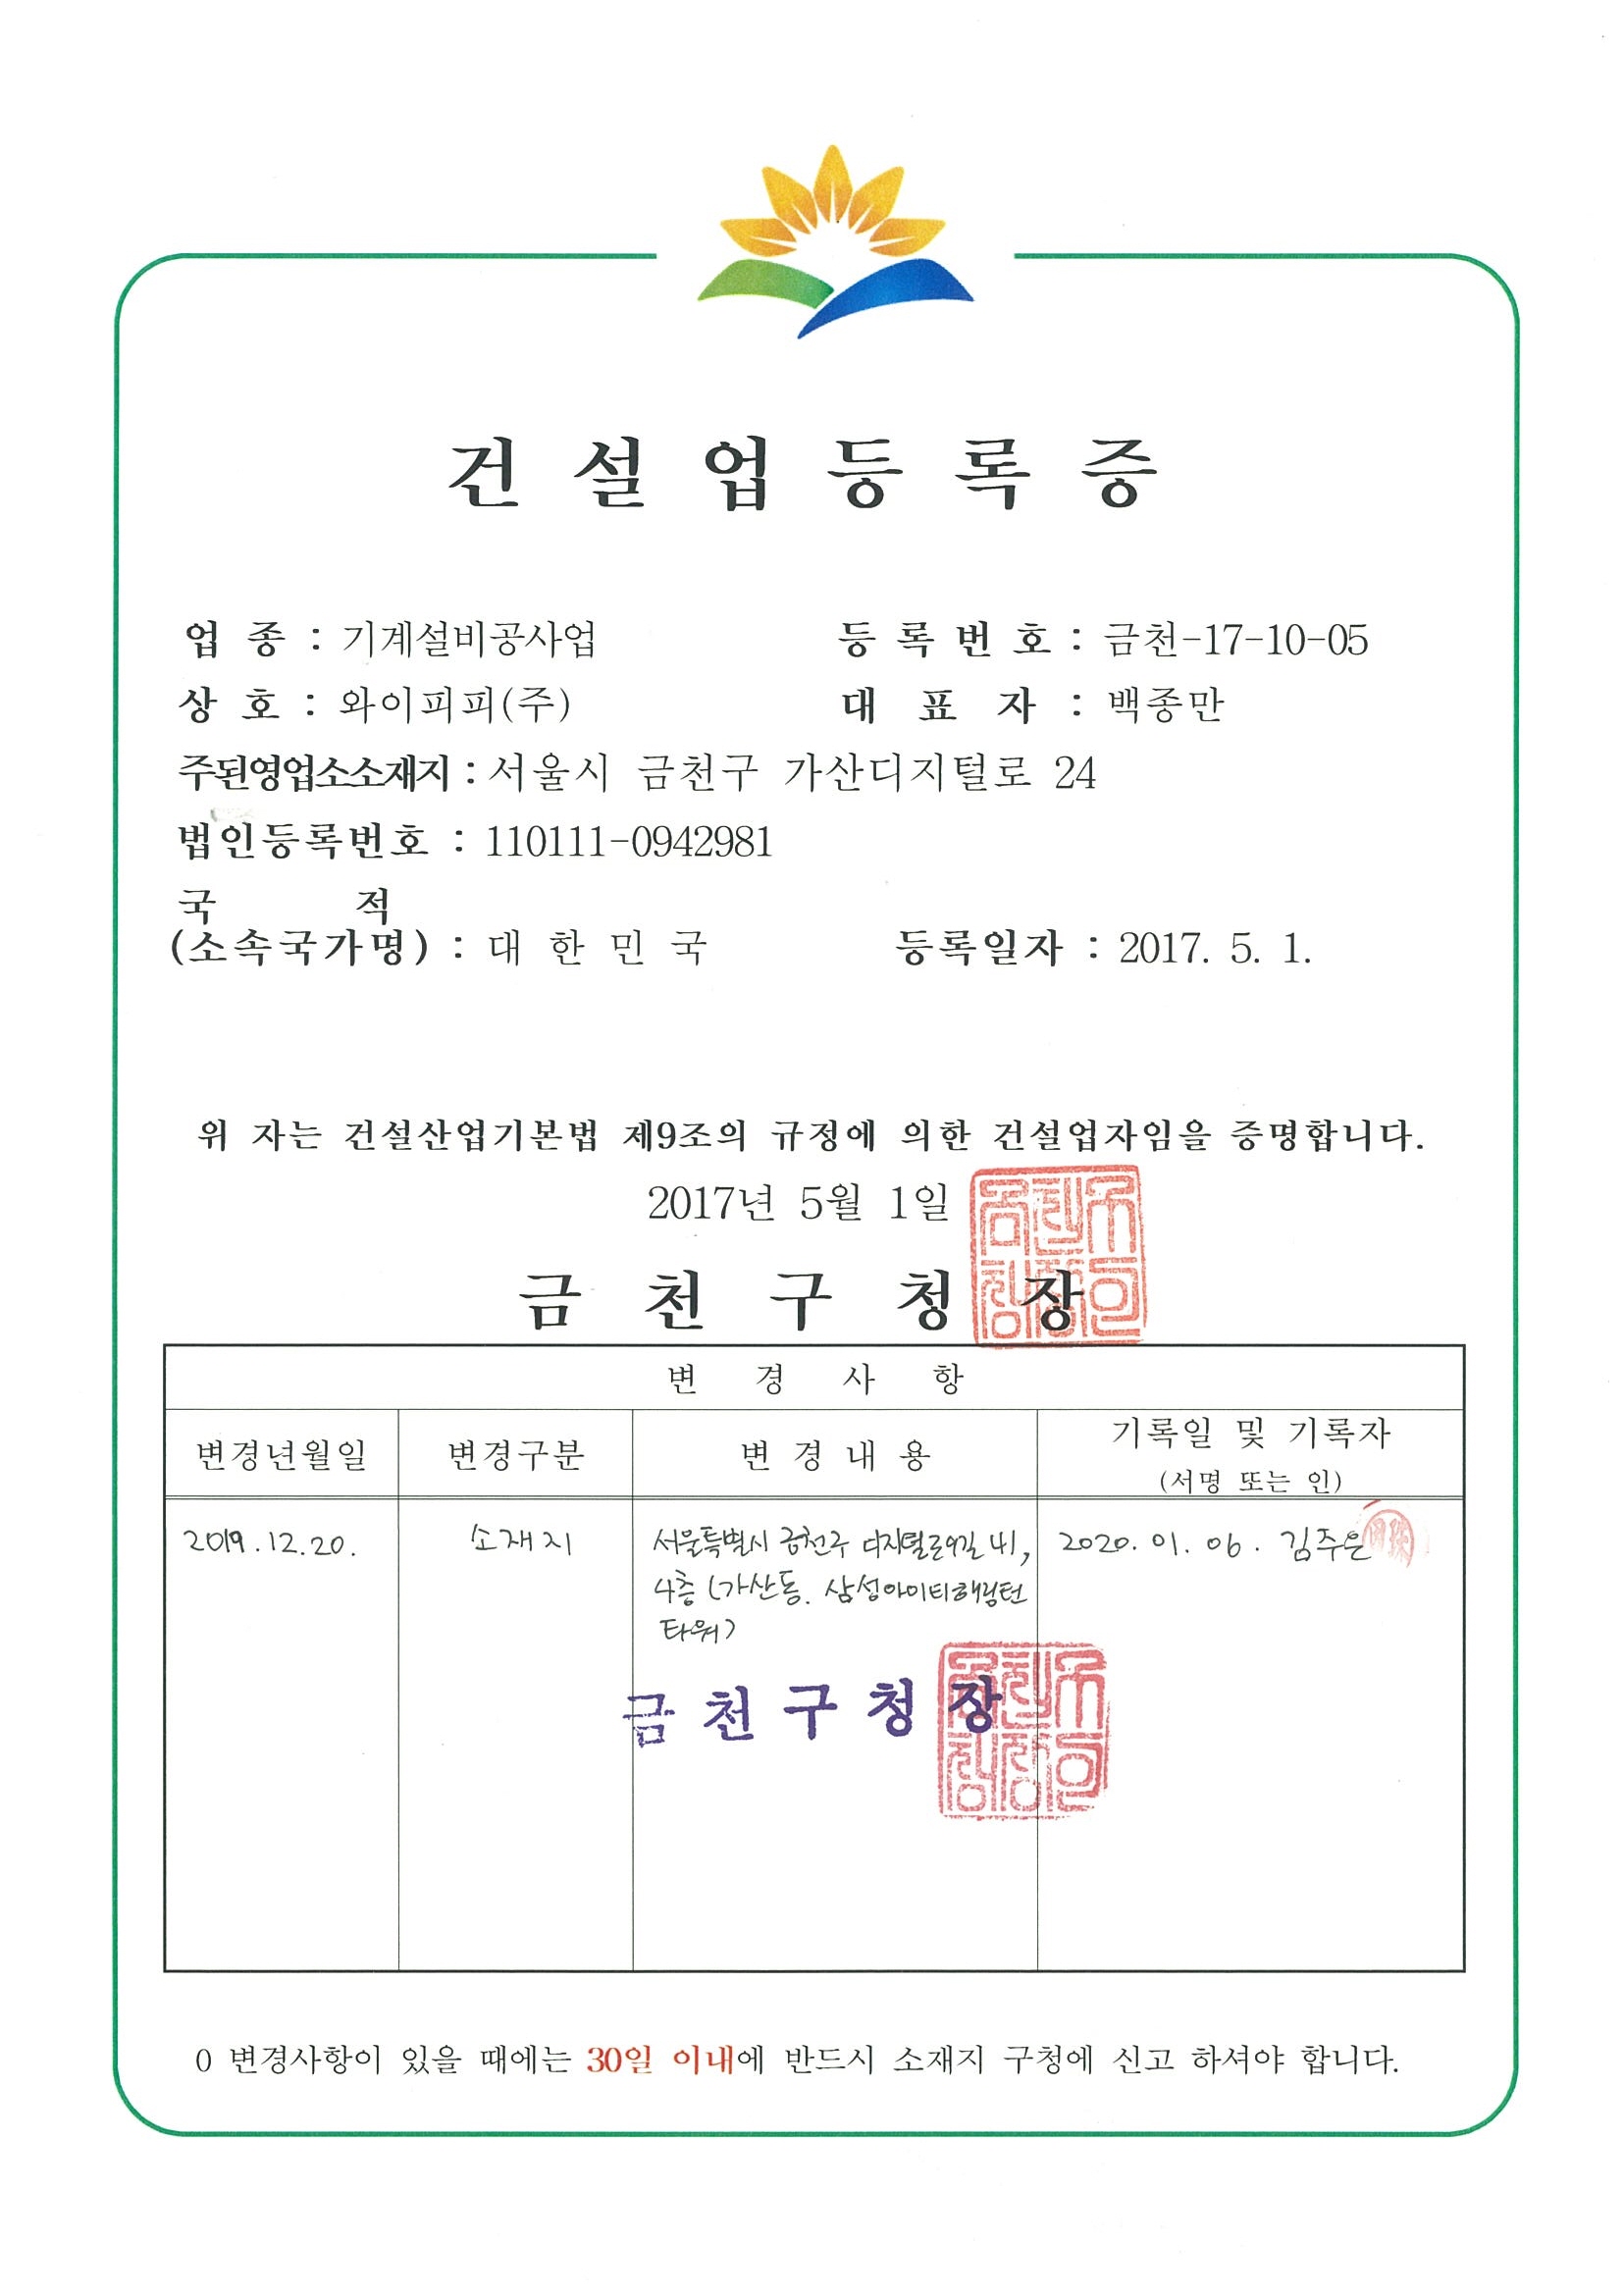 건설업등록증
업 종 : 기계설비공사업 등록번호 : 금천-17-10-05
상 호 : 와이피피(주) 대 표 자 : 백종만
주된영업소소재지 : 서울시 금천구 가산디지털로 24
법인등록번호 : 110111-0942981
국 적
(소속국가명) : 대 한 민 국 등록일자 : 2017. 5. 1.
위 자는 건설산업기본법 제9조의 규정에 의한 건설업자임을 증명합니다.
2017년 5월 1일
금 천 구 청 장
변 경 사 항
변경년월일 변경구분 변 경 내 용 기록일 및 기록자
(서명 또는 인)
2019.12.20. 소재지 서울특별시 금천구 디지털로9길 41, 2020. 01. 06. 김주은
4층 (가산동. 삼성아이티해링턴
타워)
금 천 구 청 장
0 변경사항이 있을 때에는 30일 이내에 반드시 소재지 구청에 신고 하셔야 합니다.